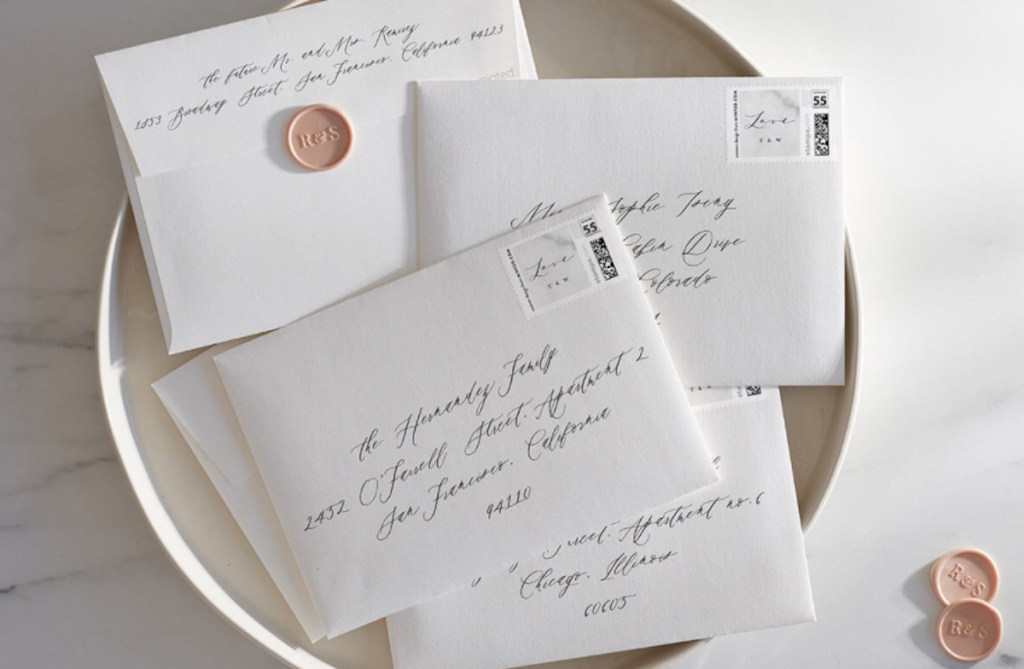 the future Mr. and Mrs. Remiey
1853 Broadway Street, San Francisco, California 94123
R&S
Love
T&W
55
stamps.com
Sophie Tseng
Drive
Colorado
Love
T&W
55
the Hernandez Family
2452 O'Farrell Street, Apartment 2
San Francisco, California
94110
Apartment no. 6
Chicago, Illinois
60605
R&S
R&S